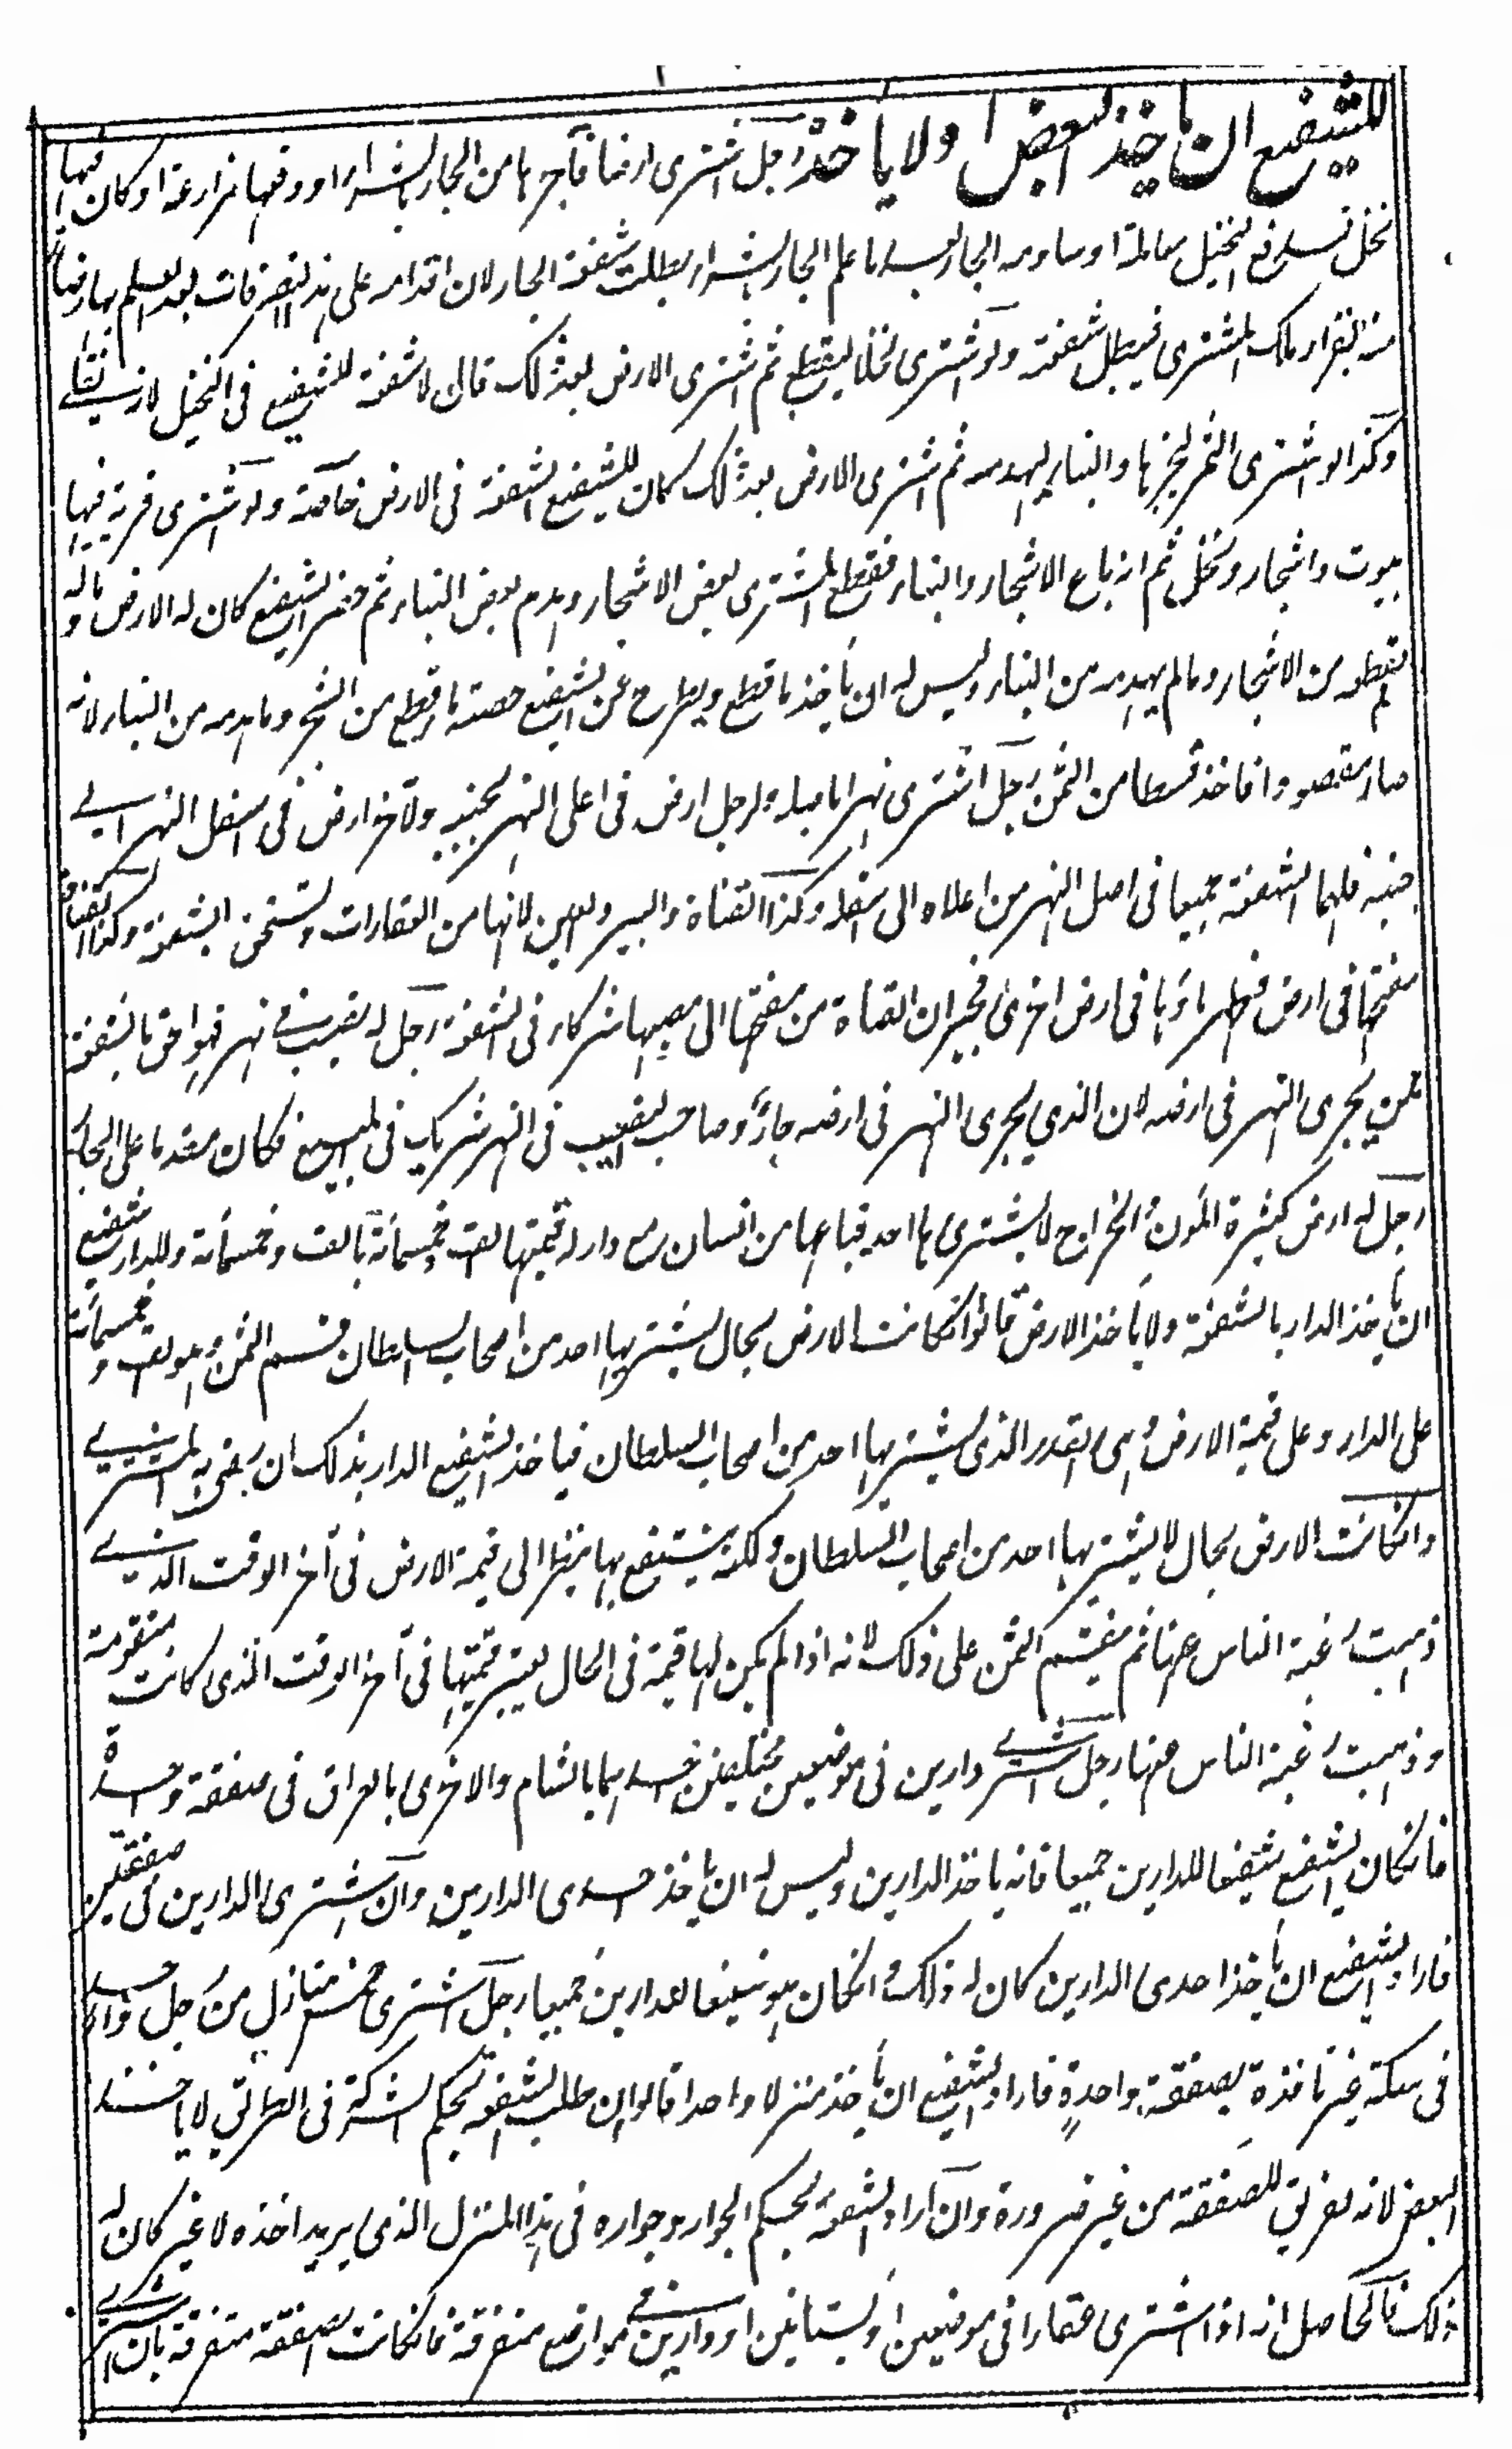 للشفيع ان ياخذ البعض ولا ياخذ رجل اشترى ارضا فآجرها من الجار بالشراء او دفعها مزارعة او كان فيها
نخل فدفع النخيل معاملة او ساومه الجار بعد ما علم الجار بالشراء بطلت شفعة الجار لان اقدامه على هذه التصرفات بعد العلم بها رضا
منه بقرار ملك المشترى فيبطل شفعته ولو اشترى نخلا ليقطع ثم اشترى الارض بعد ذلك قالوا لا شفعة للشفيع فى النخيل لانه نقلى
وكذا لو اشترى الثمر ليجزها والبناء ليهدمه ثم اشترى الارض بعد ذلك كان للشفيع الشفعة فى الارض خاصة ولو اشترى قرية فيها
بيوت واشجار ونخل ثم انه باع الاشجار والبناء فقطع المشترى بعض الاشجار وهدم بعض البناء ثم حضر الشفيع كان له الارض وما
لم يقطعه من الاشجار وما لم يهدمه من البناء وليس له ان ياخذ ما قطع ويطرح عن الشفيع حصة ما قطع من الشجر وما هدمه من البناء لانه
صار مقصودا فاخذ قسطا من الثمن رجل اشترى نهرا باصله ولرجل ارض فى اعلى النهر بجنبه ولآخر ارض فى اسفل النهر الى
جنبه فلهما الشفعة جميعا فى اصل النهر من اعلاه الى اسفله وكذا القناة والبير والعين لانها من العقارات وتستحق بالشفعة وكذا القناة
مفتحها فى ارض فظهر ماؤها فى ارض اخرى فجيران القناة من مفتحها الى مصبها شركاء فى الشفعة رجل له نصيب فى نهر فهو احق بالشفعة
ممن يجرى النهر فى ارضه لان الذي يجرى النهر فى ارضه جار وصاحب النصيب فى النهر شريك فى المبيع فكان مقدما على الجار
رجل له ارض كثيرة المؤن والخراج لا يشتريها احد فباعها من انسان مع دار له قيمتها الف وخمسمائة بالف وخمسمائة وللدار شفيع
ان ياخذ الدار بالشفعة ولا ياخذ الارض قالوا ان كانت الارض بحال يشتريها احد من اصحاب السلطان قسم الثمن وهو الف وخمسمائة
على الدار وعلى قيمة الارض وهى القدر الذى يشتريها احد من اصحاب السلطان فياخذ الشفيع الدار بذلك ان رضى به المشترى
وان كانت الارض بحال لا يشتريها احد من اصحاب السلطان ولكنه ينتفع بها ينظر الى قيمة الارض فى آخر الوقت الذى
ذهبت رغبة الناس عنها ثم يقسم الثمن على ذلك لانه اذا لم يكن لها قيمة فى الحال يعتبر قيمتها فى آخر الوقت الذى كانت متقومة
وذهبت رغبة الناس عنها رجل اشترى دارين فى موضعين مختلفين احدهما بالشام والاخرى بالعراق فى صفقة واحدة
فان كان الشفيع شفيعا للدارين جميعا فانه ياخذ الدارين وليس له ان ياخذ احدى الدارين وان اشترى الدارين فى صفقتين
فاراد الشفيع ان ياخذ احدى الدارين كان له ذلك وان كان هو شفيعا للدارين جميعا رجل اشترى خمس منازل من رجل واحد
فى سكة غير نافذة بصفقة واحدة فاراد الشفيع ان ياخذ منزلا واحدا قالوا ان طلب الشفعة بحكم الشركة فى الطريق لا ياخذ
البعض لانه تفريق للصفقة من غير ضرورة وان اراد الشفعة بحكم الجوار وجواره فى هذا المنزل الذى يريد اخذه لا غير كان له
ذلك فالحاصل انه اذا اشترى عقارا فى موضعين او بستانين او دارين فى مواضع متفرقة فان كانت الصفقة متفرقة بان اشترى